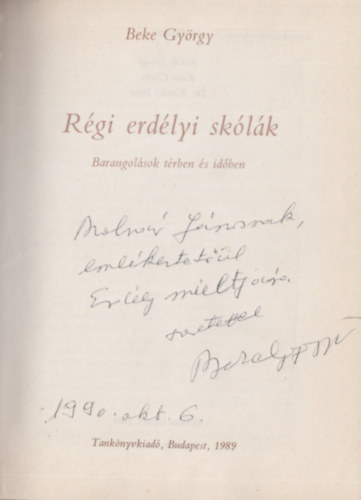 Beke György
Régi erdélyi skólák
Barangolások térben és időben
Molnár Jánosnak,
emlékeztetőül
Erdély múltjára
szeretettel
Beke György
1990. okt. 6.
Tankönyvkiadó, Budapest, 1989